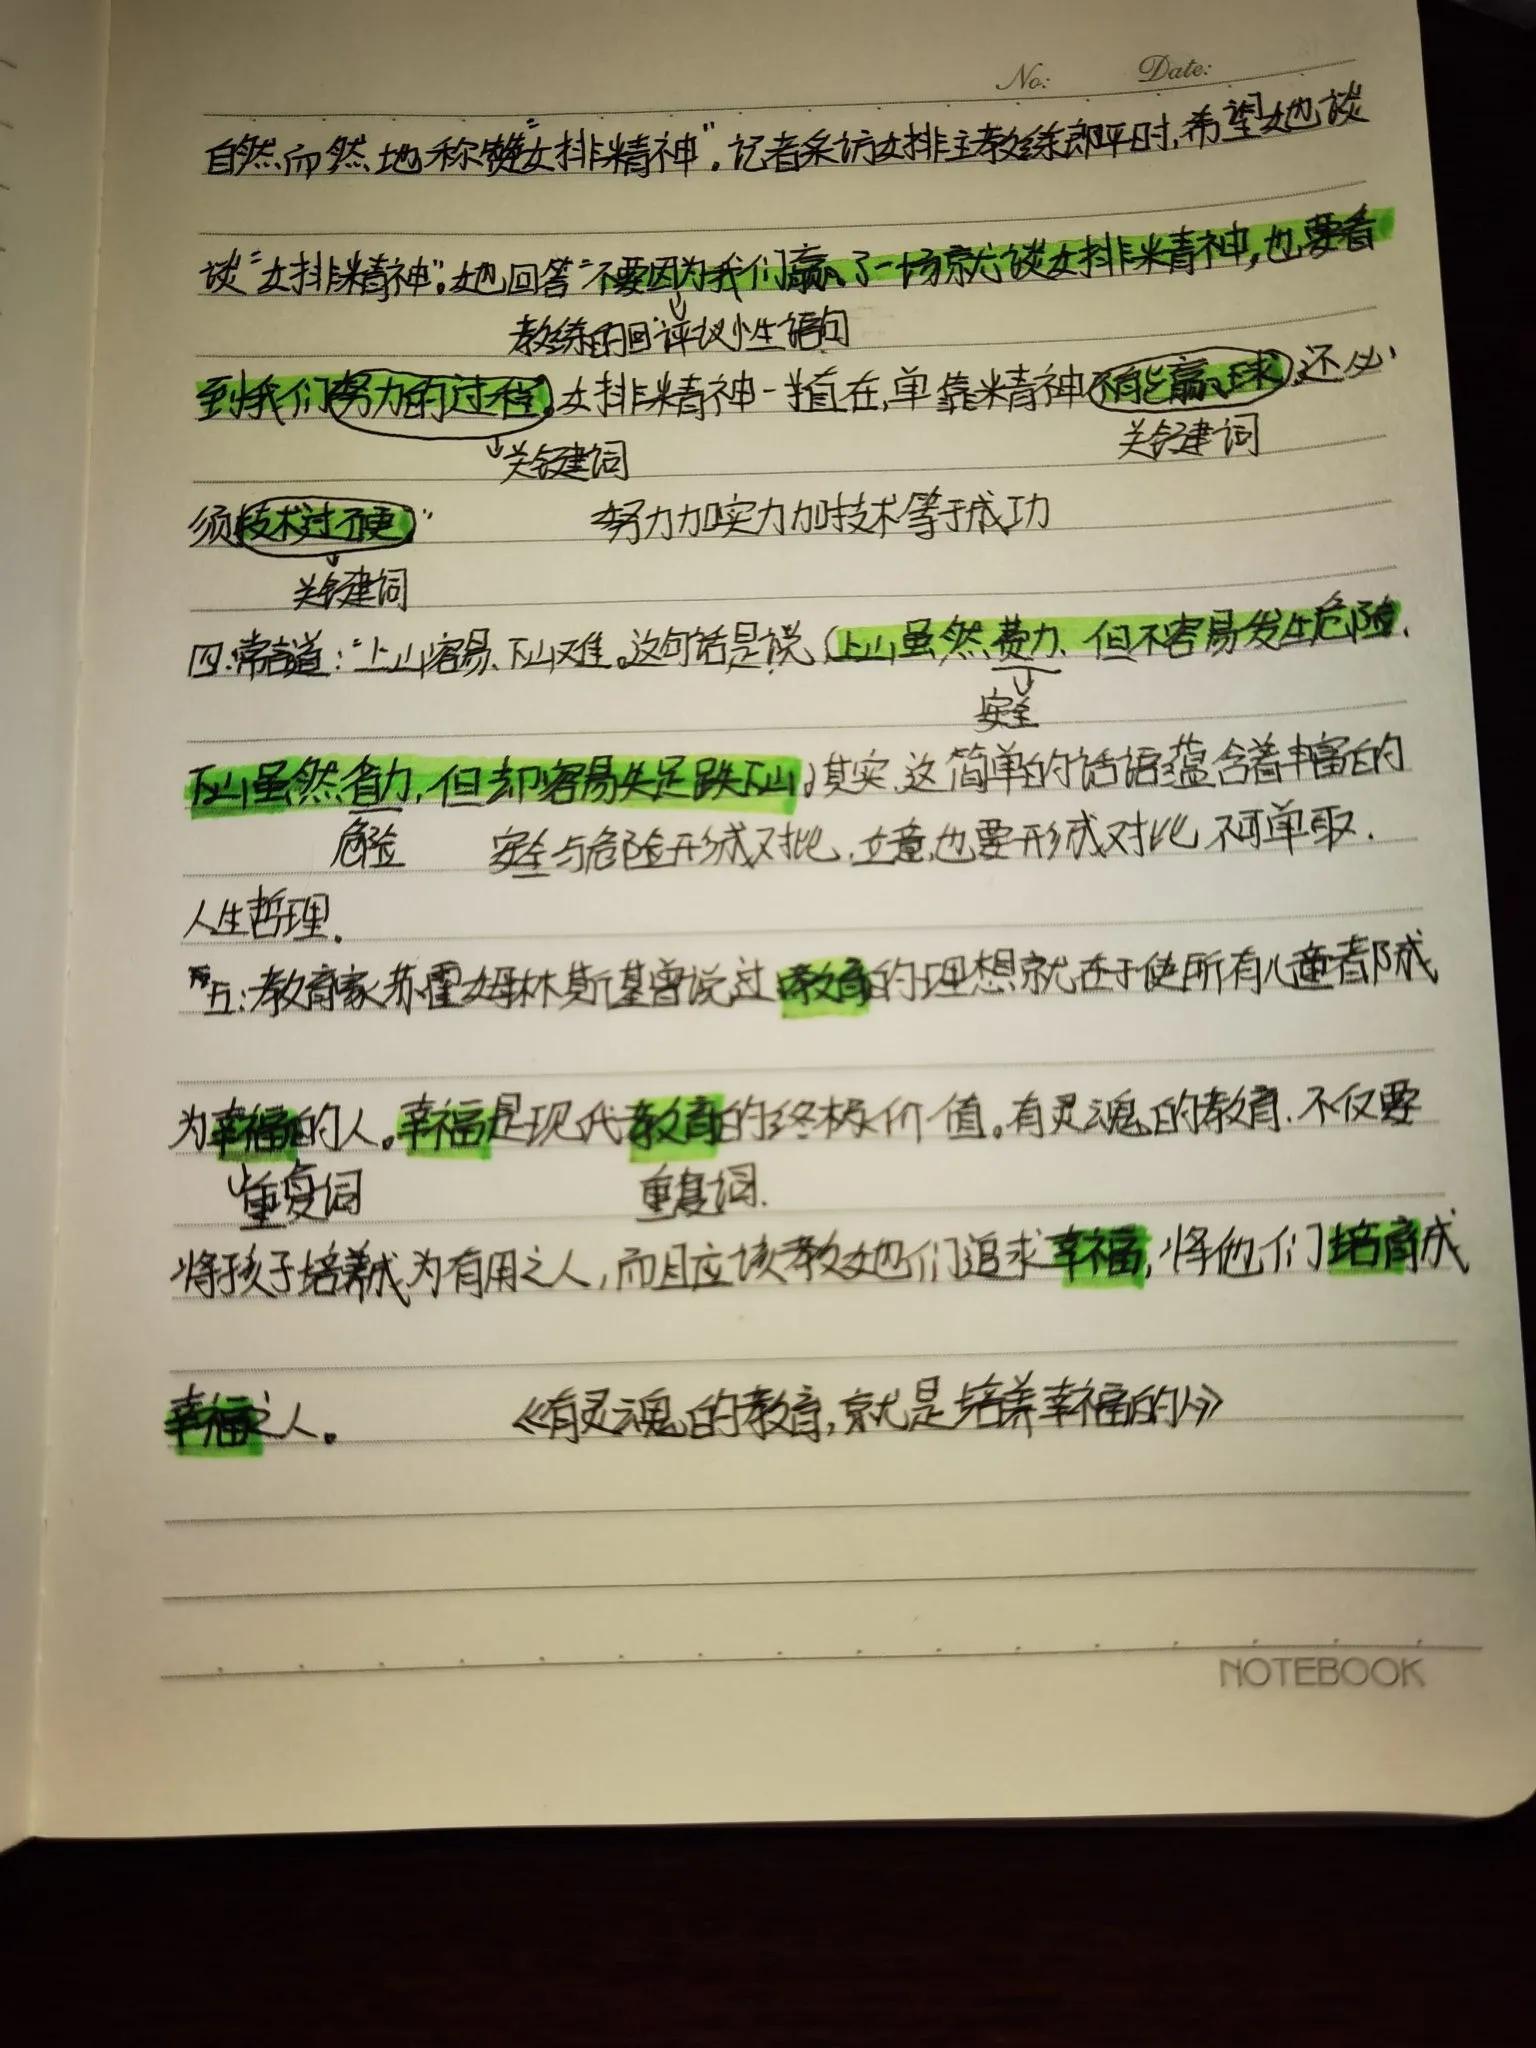 No: Date:
自然而然地称赞"女排精神"。记者采访女排主教练郎平时,希望她谈
谈"女排精神"。她回答"不要因为我们赢了一场就谈女排精神,也要看
教练的回 评议性语句
到我们努力的过程。女排精神一直在,单靠精神不能赢球,还必
关键词 关键词
须技术过硬。" 努力加实力加技术等于成功
关键词
四:常言道:"上山容易、下山难。这句话是说(上山虽然费力、但不容易发生危险、
安全
下山虽然省力,但却容易失足跌下山。其实、这简单的话语蕴含着丰富的
危险 安全与危险形成对比、立意也要形成对比、不可单取.
人生哲理.
五:教育家苏霍姆林斯基曾说过:教育的理想就在于使所有儿童都成
为幸福的人。幸福是现代教育的终极价值。有灵魂的教育.不仅要
重复词 重复词.
将孩子培养成为有用之人,而且应该教她们追求幸福,将他们培育成
幸福之人。 《有灵魂的教育,就是培养幸福的人》
NOTEBOOK